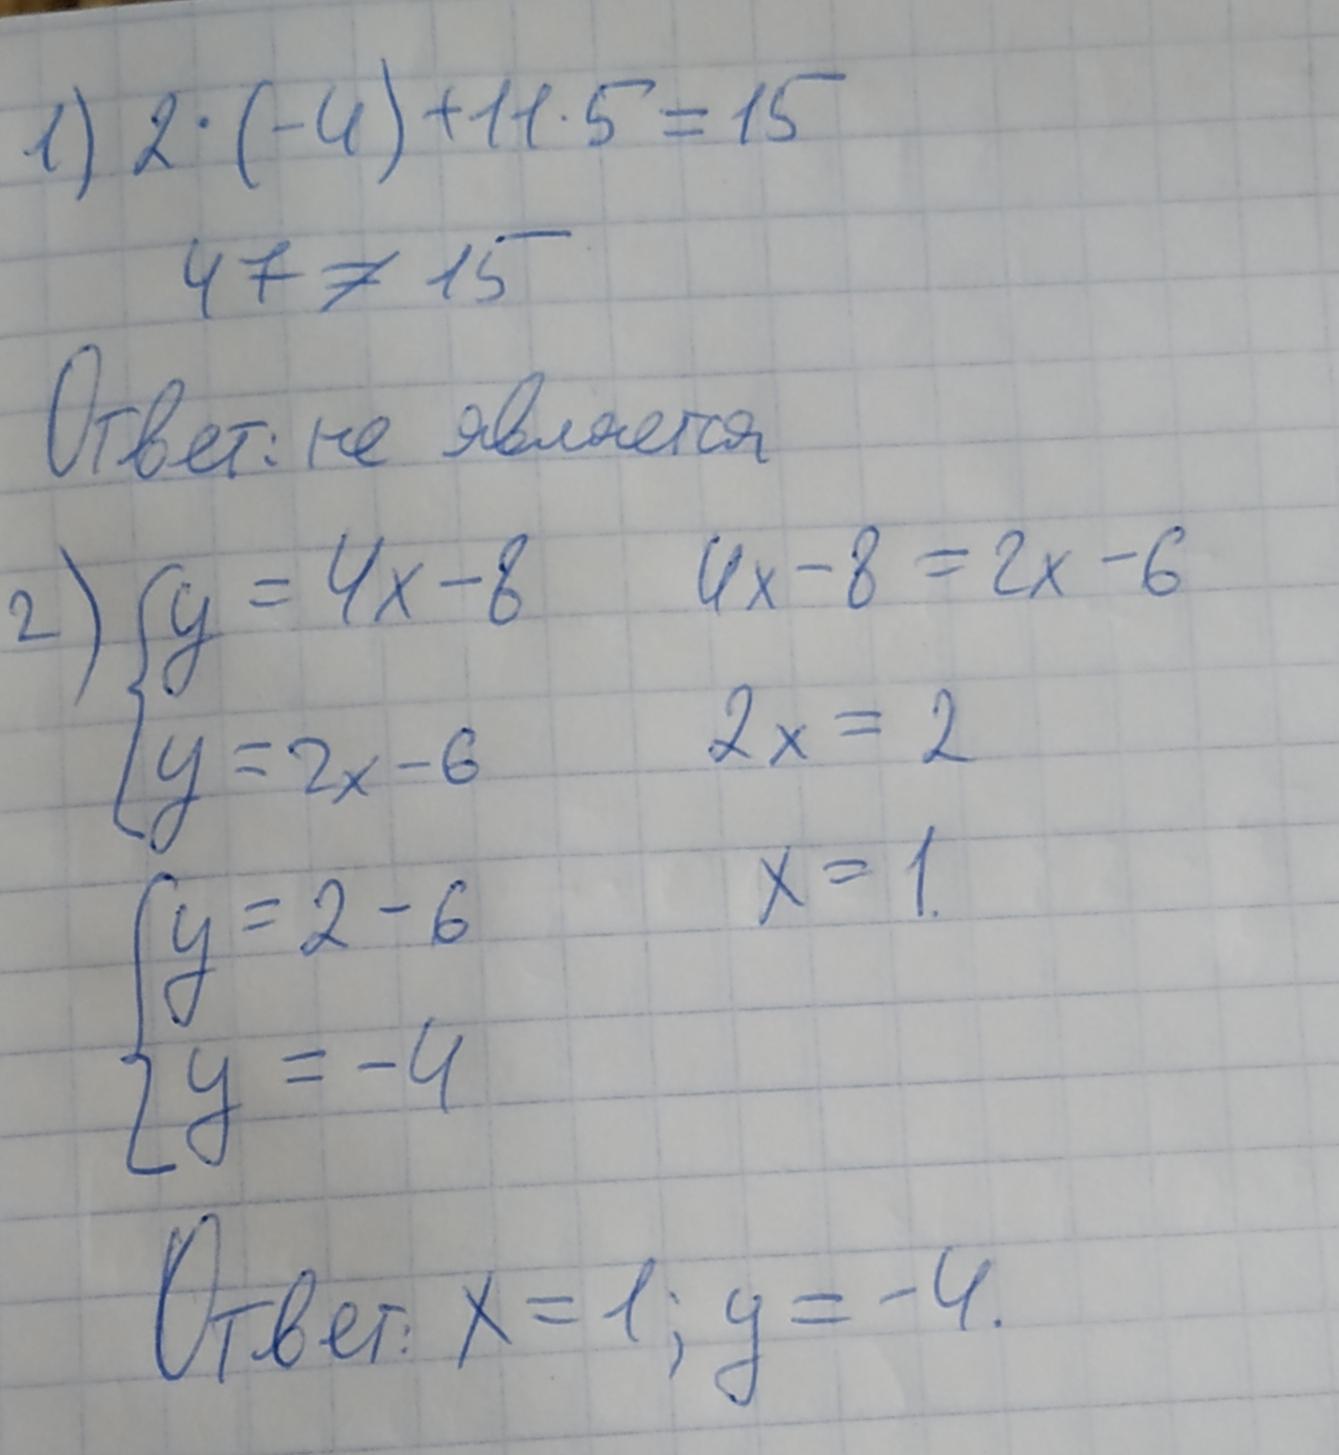 1) 2·(-4)+11·5=15
47≠15
Ответ: не является
2) {y=4x-8   4x-8=2x-6
{y=2x-6   2x=2
{y=2-6   x=1.
{y=-4
Ответ: x=1; y=-4.